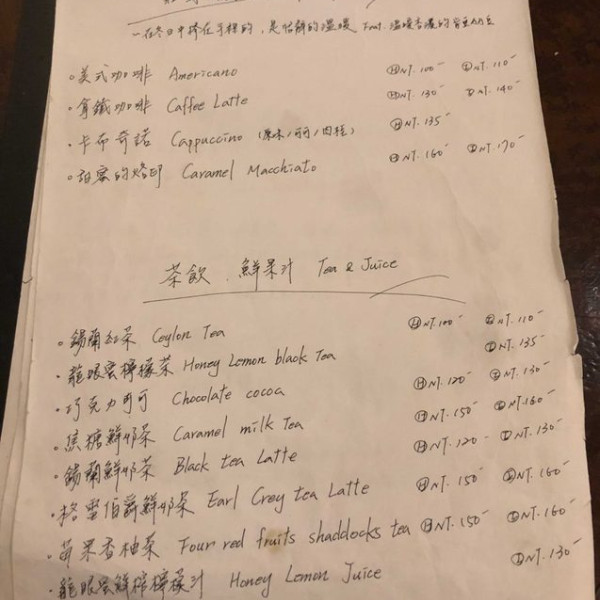 一在冬日中捧在手裡的，是恬靜的溫暖 Feat. 溫暖香濃的
。美式咖啡 Americano ⒽNT.100- ⒾNT.110-
。拿鐵咖啡 Caffee Latte ⒽNT.130- ⒾNT.140-
。卡布奇諾 Cappuccino (原味/可可/肉桂) ⒽNT.135-
。甜蜜的烙印 Caramel Macchiato ⒽNT.160- ⒾNT.170-
茶飲．鮮果汁 Tea & Juice
。錫蘭紅茶 Ceylon Tea ⒽNT.100- ⒾNT.110-
。龍眼蜜檸檬茶 Honey Lemon black Tea ⒾNT.135-
。巧克力可可 Chocolate cocoa ⒽNT.120- ⒾNT.130-
。焦糖鮮奶茶 Caramel milk Tea ⒽNT.150- ⒾNT.160-
。錫蘭鮮奶茶 Black tea Latte ⒽNT.120- ⒾNT.130-
。格雷伯爵鮮奶茶 Earl Grey tea Latte ⒽNT.150- ⒾNT.160-
。莓果香柚茶 Four red fruits shaddocks tea ⒽNT.150- ⒾNT.160-
。龍眼蜜鮮檸檬汁 Honey Lemon Juice ⒾNT.130-